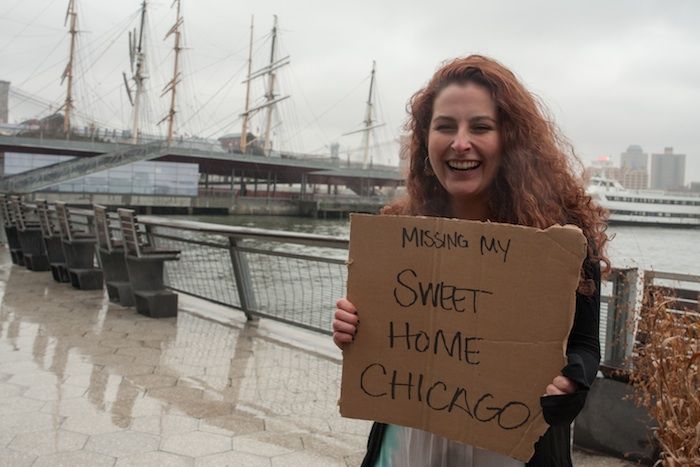 MISSING MY
SWEET
HOME
CHICAGO